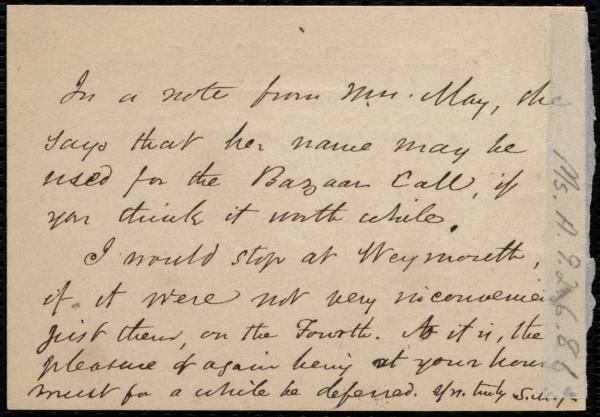 In a note from Mrs. May, she
says that her name may be
used for the Bazaar Call, if
you think it worth while.
I would stop at Weymouth,
if it were not very inconvenient
just then, on the Fourth. As it is, the
pleasure of again being at your house
must for a while be deferred. Yrs. truly S. M. Jr.
Ms. A. 9.2 v. 6. 86